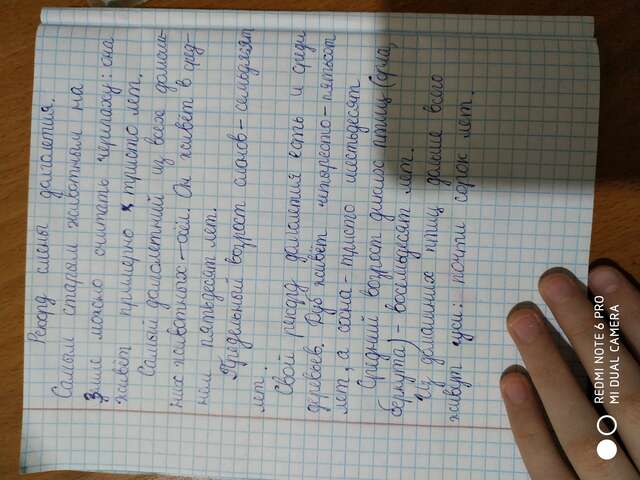 Рекорд смены долголетия.
Самым старым животным на
Земле можно считать черепаху: она
живёт примерно тристо лет.
Самый долголетний из всех домаш-
них животных - осёл. Он живёт в сред-
нем пятьдесят лет.
Предельный возрост слонов - семьдесят
лет.
Свой рекорд долголетия есть и среди
деревьев. Дуб живёт четыресто - пятьсот
лет, а сосна - тристо шестьдесят
Средний возрост диких птиц (орла,
беркута) - восемьдесят лет.
Из домашних птиц дольше всего
живут гуси: почти сорок лет.
REDMI NOTE 6 PRO
MI DUAL CAMERA